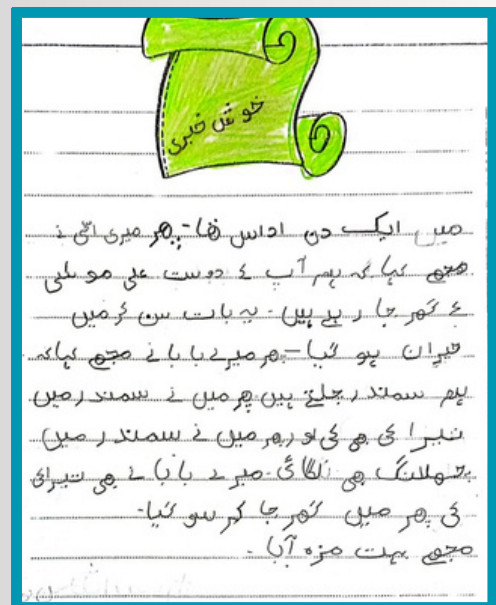 خوش خبری
میں ایک دن اداس تھا۔ پھر میری امّی نے
مجھے کہا کہ ہم آپ کے دوست علی موسٰی
کے گھر جا رہے ہیں۔ یہ بات سن کر میں
حیران ہو گیا۔ پھر میرے بابا نے مجھے کہا کہ
ہم سمندر چلتے ہیں پھر میں نے سمندر میں
تیرا کی بھی کی اور پھر میں نے سمندر میں
چھلانگ بھی لگائی۔ میرے بابا نے بھی تیراکی
کی پھر میں گھر جا کر سو گیا۔
مجھے بہت مزہ آیا۔